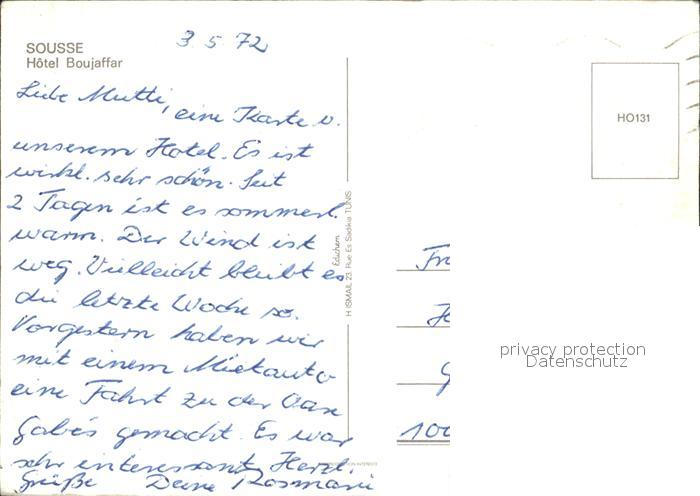 3.5.72
SOUSSE
Hôtel Boujaffar
Liebe Mutti,
eine Karte v.
unserem Hotel. Es ist
wirkl. sehr schön. Seit
2 Tagen ist es sommerl.
warm. Der Wind ist
weg. Vielleicht bleibt es
die letzte Woche so.
Vorgestern haben wir
mit einem Mietauto
eine Fahrt zu der Oase
Gabés gemacht. Es war
sehr interessant. Herzl.
Grüße Deine Rosmarie
H. ISMAIL 23, Rue Es Sadikia TUNIS
HO131
Fr
H
G
100
privacy protection
Datenschutz